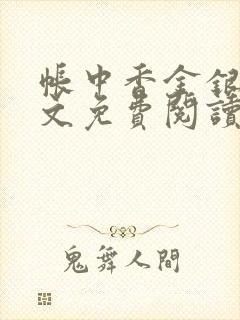 帳中香金銀
文免費閱讀
鬼舞人間